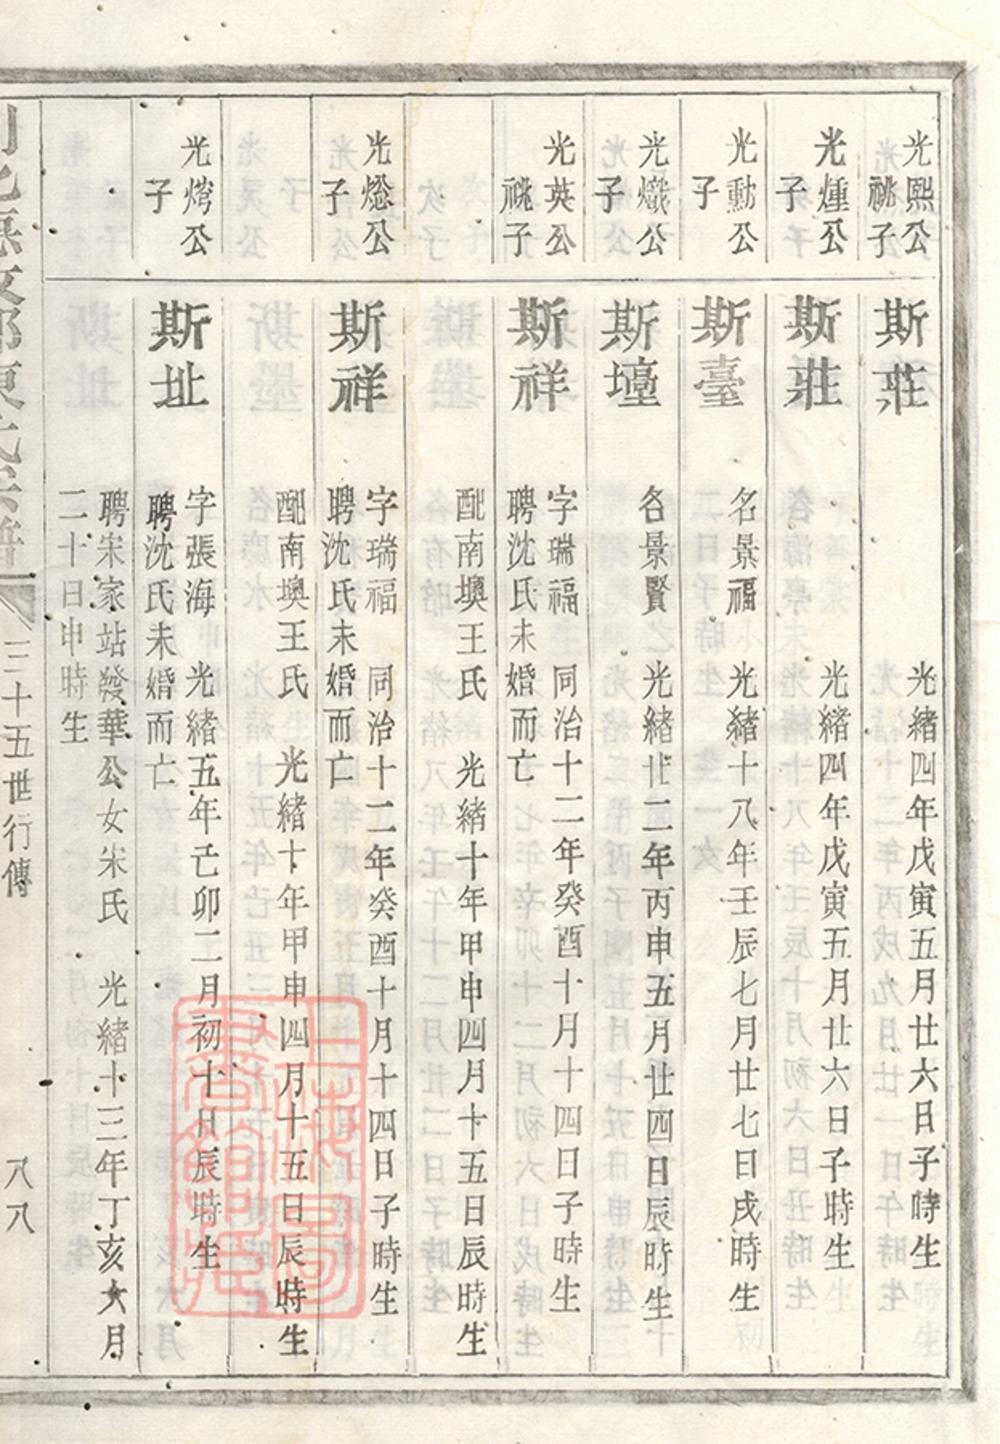 光熙公
祧子
斯莊
光緒四年戊寅五月廿六日子時生
光煄公
子
斯莊
光緒四年戊寅五月廿六日子時生
光勳公
子
斯臺
名景福 光緒十八年壬辰七月廿七日戌時生
光熾公
子
斯壇
名景賢 光緒廿二年丙申五月廿四日辰時生
光英公
祧子
斯祥
字瑞福 同治十二年癸酉十月十四日子時生
聘沈氏未婚而亡
配南墺王氏 光緒十年甲申四月十五日辰時生
光燚公
子
斯祥
字瑞福 同治十二年癸酉十月十四日子時生
聘沈氏未婚而亡
配南墺王氏 光緒十年甲申四月十五日辰時生
光公
子
斯址
字張海 光緒五年己卯二月初十日辰時生
聘沈氏未婚而亡
聘宋家站發華公女宋氏 光緒十三年丁亥六月
二十日申時生
三十五世行傳
八八